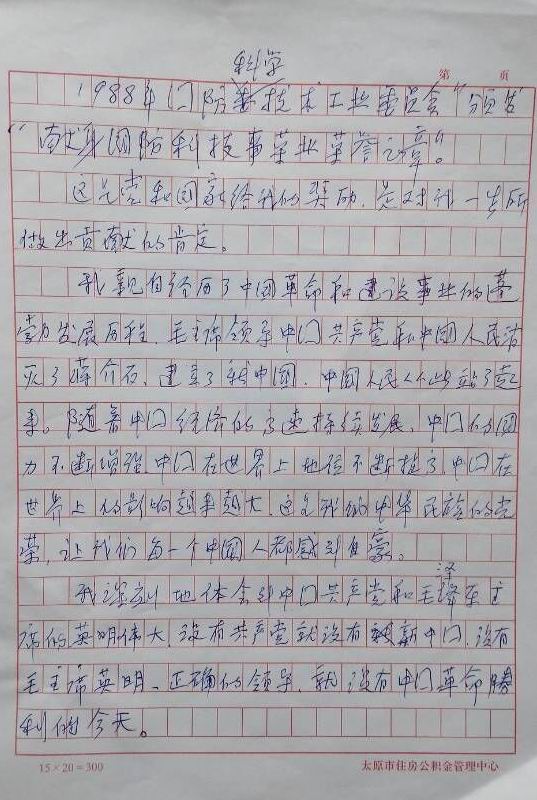 科学
第 页
1988年门防委技术工业委员会"颁发
"献身国防科技事业荣誉之章"。
这是党和国家给我的奖励,是对我一生所
做出贡献的肯定。
我亲自经历了中国革命和建设事业的蓬
勃发展历程,毛主席领导中门共产党和中國人民消
灭了蒋介石,建立了新中國,中國人民从此站了起
来。随着中门经济的高速持续发展,中门的國
力不断增强中门在世界上地位不断提高中门在
世界上的影响越来越大,这是我们中华民族的光
荣,让我们每一个中國人都感到自豪。
泽
我深刻地体会到中门共产党和毛泽东主
席的英明伟大,没有共产党就没有新中门,没有
毛主席英明、正确的领导,就没有中门革命勝
利的今天。
15×20=300 太原市住房公积金管理中心